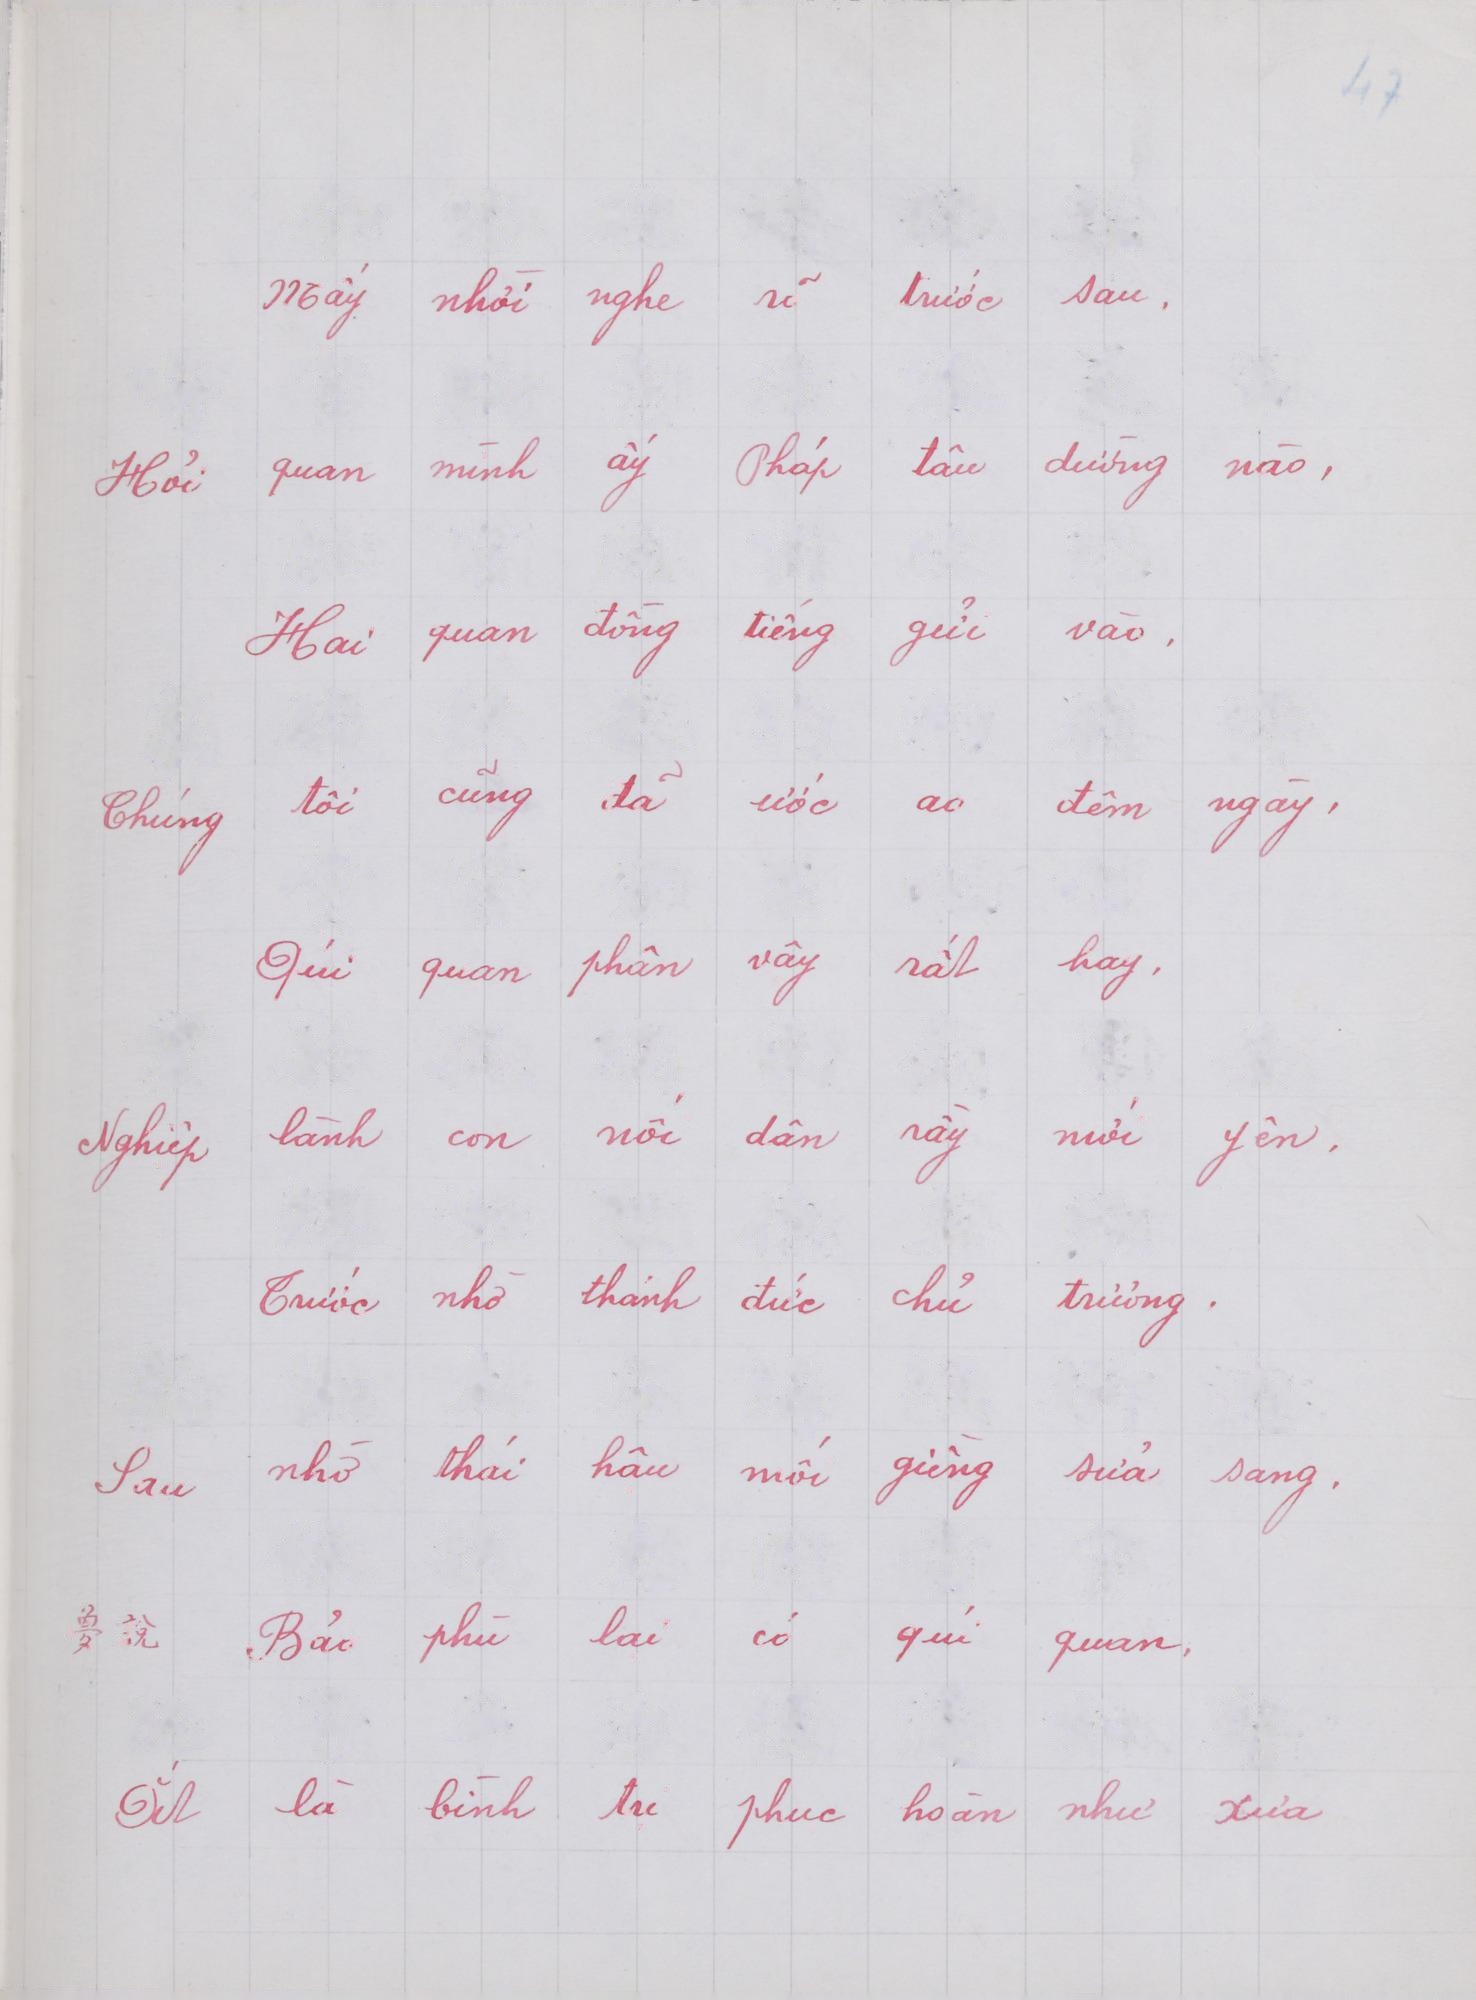 47
Mấy nhời nghe rõ trước sau,
Hỏi quan mình ấy Pháp tâu dường nào,
Hai quan đồng tiếng gửi vào,
Chúng tôi cũng đã ước ao đêm ngày,
Qúi quan phân vậy rất hay,
Nghiệp lành con nối dân rầy mới yên,
Trước nhờ thánh đức chủ trương.
Sau nhờ thái hậu mối giềng sửa sang,
夢 說 Bảo phù lại có qúi quan,
Ắt là bình trị phục hoàn như xưa